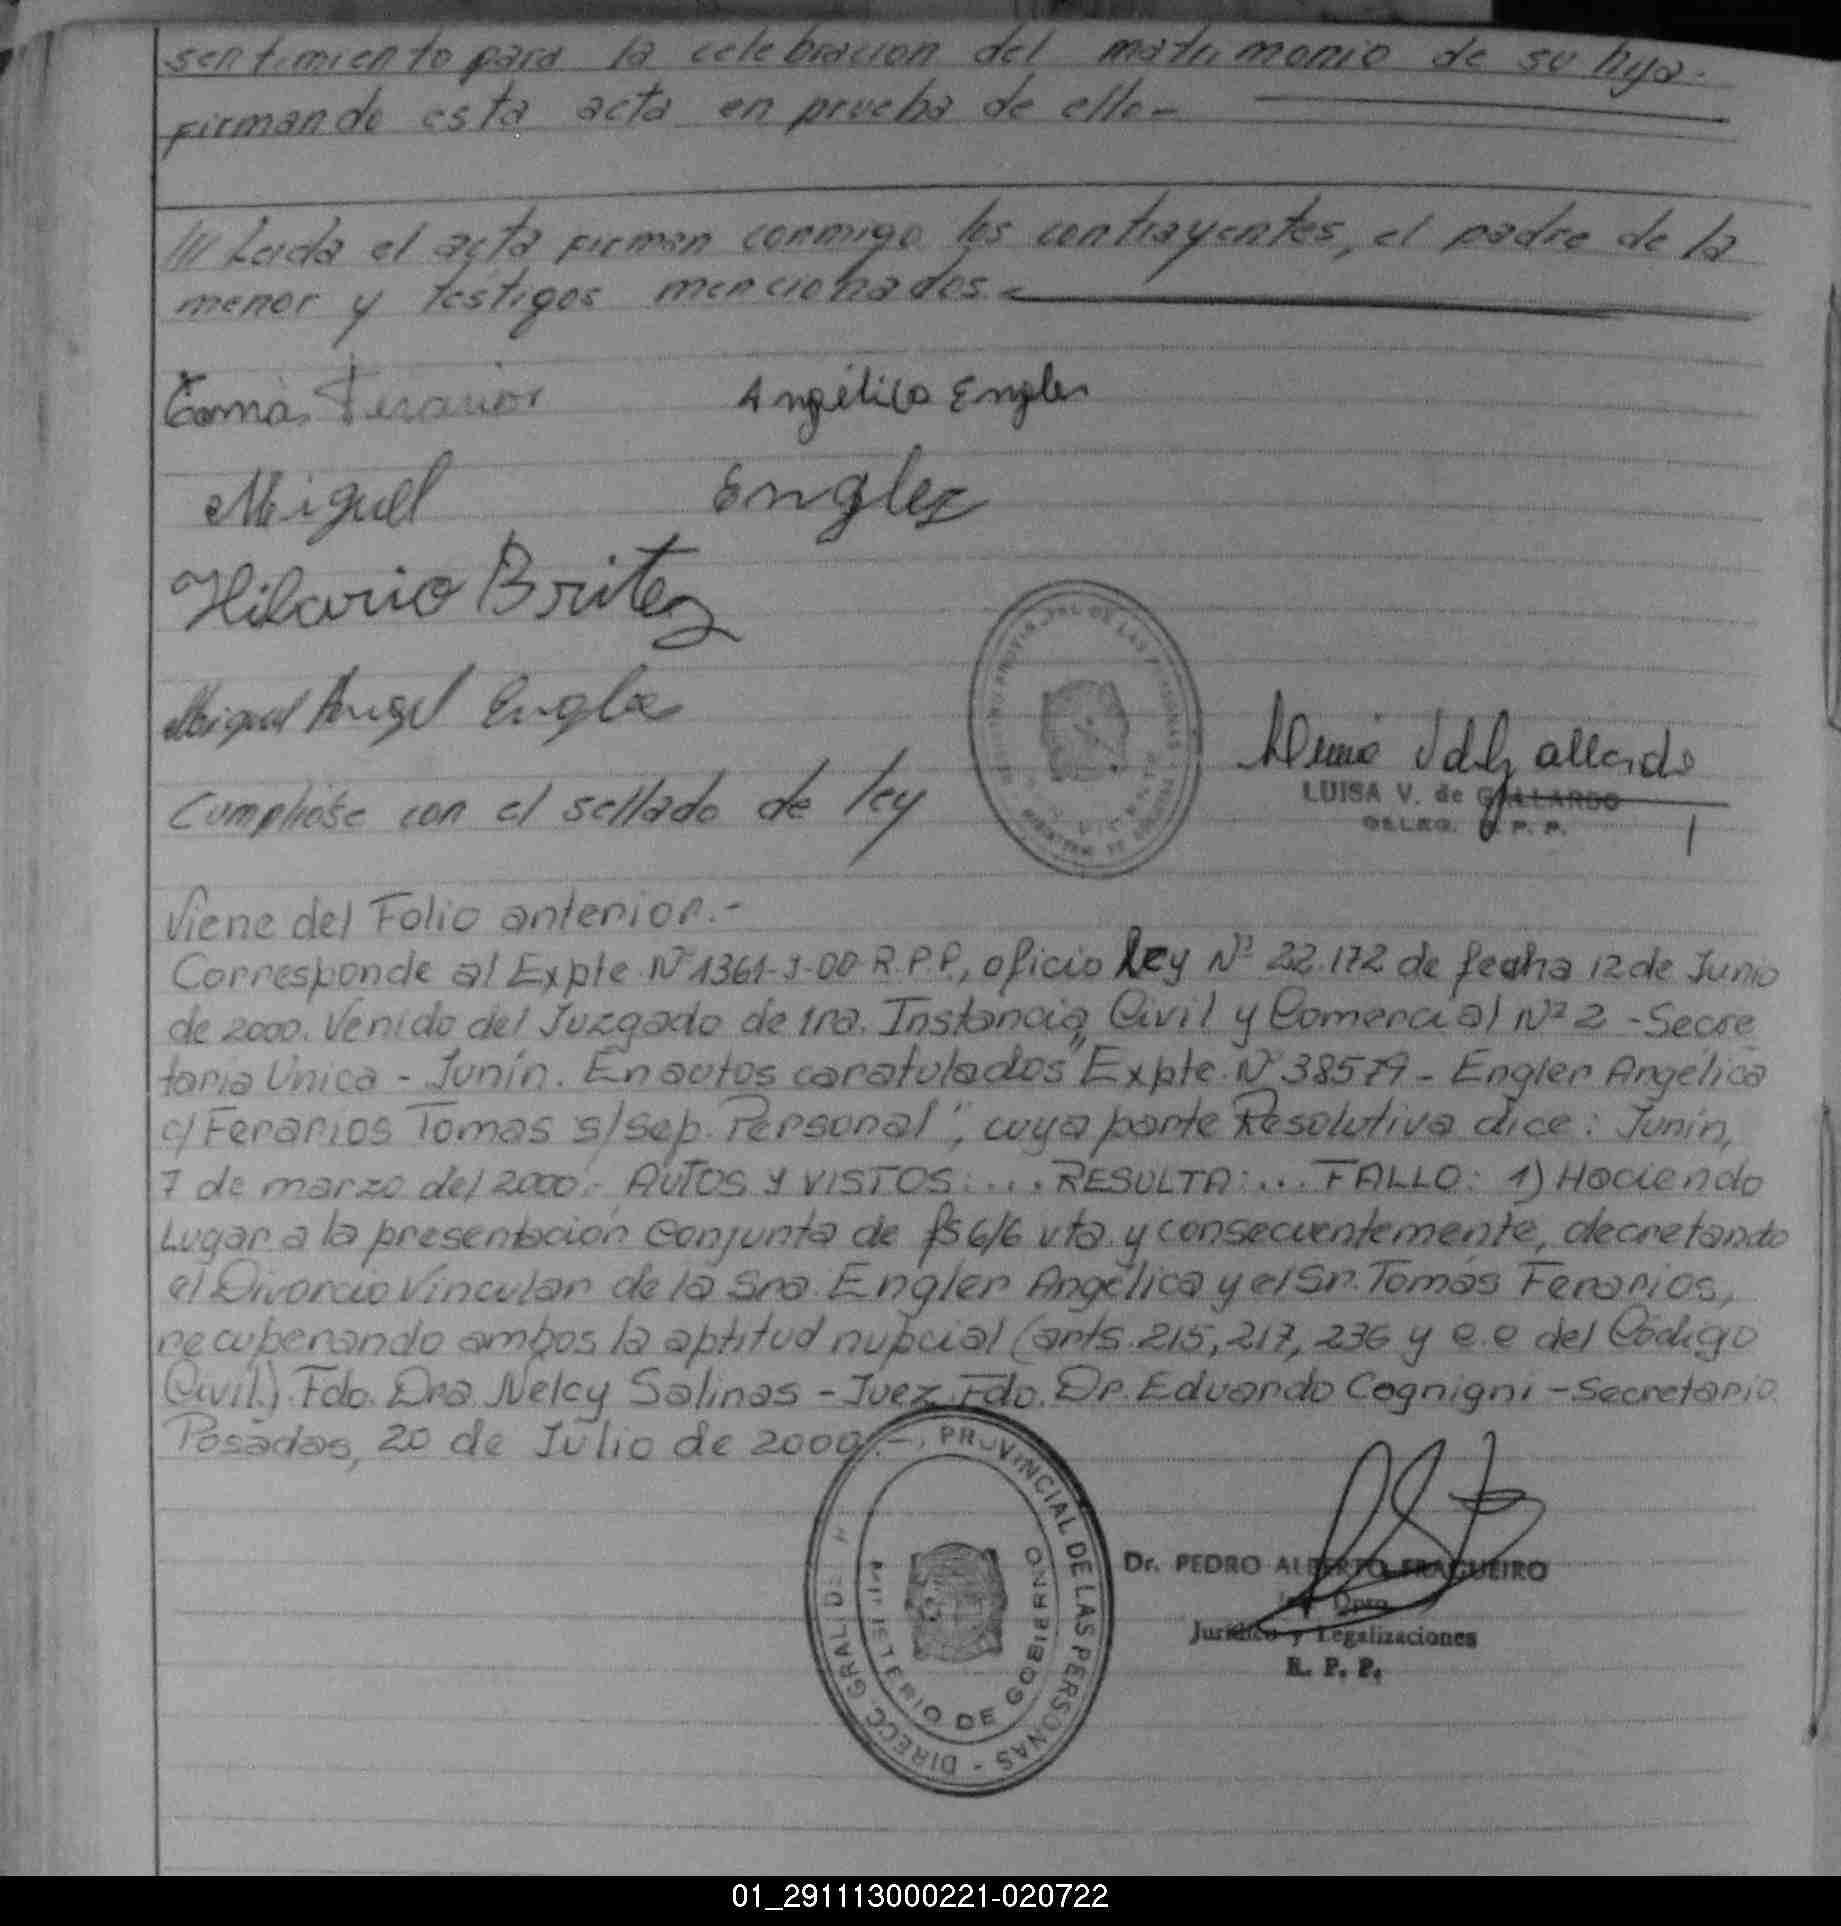 sentimiento para la celebracion del matrimonio de su hija.
firmando esta acta en prueba de ello-
/// Leida el acta firman conmigo los contrayentes, el padre de la
menor y testigos mencionados.-
Tomas Ferarios
Angélica Engler
Miguel Engler
Hilario Britez
Miguel Angel Engler
Cumpliose con el sellado de ley
LUISA V. de GALLARDO
DELEG. R. P. P.
Viene del Folio anterior.-
Corresponde al Expte Nº 1361-J-00-R.P.P., oficio ley Nº 22.172 de fecha 12 de Junio
de 2000. Venido del Juzgado de 1ra. Instancia Civil y Comercial Nº 2 -Secre
taria Unica - Junín. En autos caratulados "Expte. Nº 38579 - Engler Angélica
c/ Ferarios Tomas s/ Sep. Personal", cuya parte Resolutiva dice: Junín,
7 de marzo del 2000.- AUTOS Y VISTOS:... RESULTA:... FALLO: 1) Haciendo
Lugar a la presentación Conjunta de fs 6/6 vta. y consecuentemente, decretando
el Divorcio Vincular de la Sra. Engler Angélica y el Sr. Tomás Ferarios,
recuperando ambos la aptitud nupcial (arts. 215, 217, 236 y c.c del Código
Civil.) Fdo. Dra. Nelcy Salinas - Juez. Fdo. Dr. Eduardo Cognigni - Secretario.
Posadas, 20 de Julio de 2000.-
PROVINCIAL DE LAS PERSONAS - DIRECC. GRAL DEL
MINISTERIO DE GOBIERNO
Dr. PEDRO ALBERTO FRAGUEIRO
Dpto.
Jurídico y Legalizaciones
R. P. P.
01_291113000221-020722